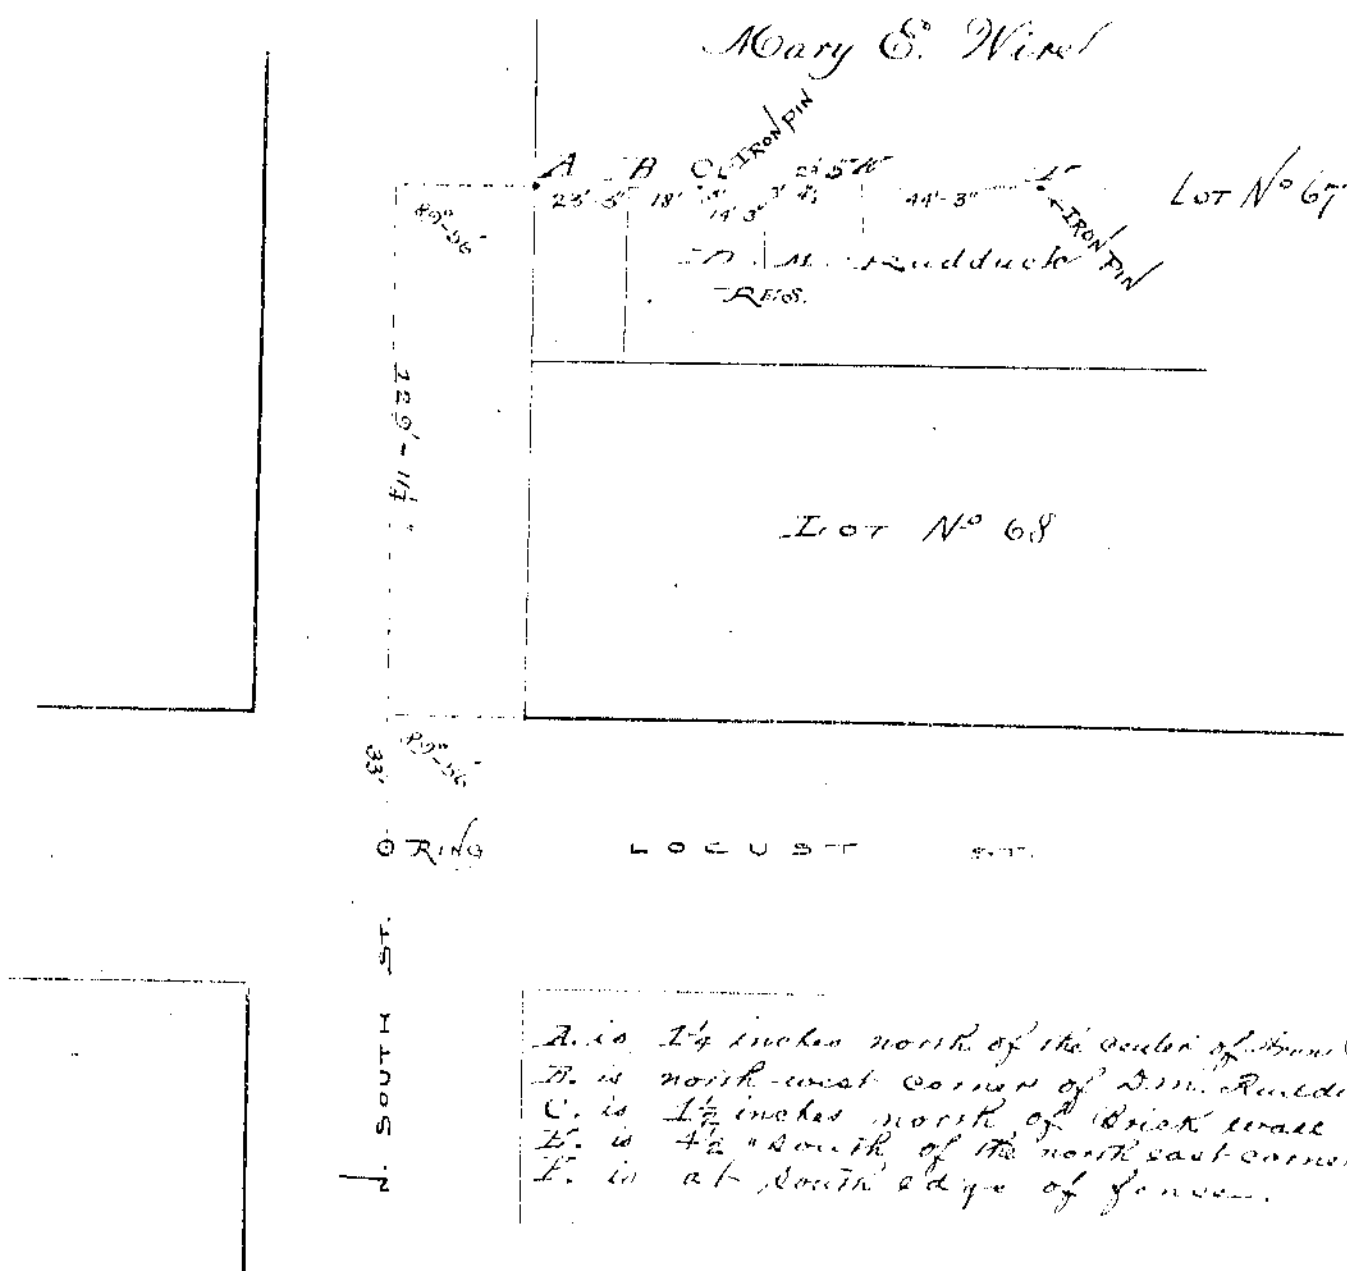 Mary E. Wire
IRON PIN
A B C E F
23'-5" 18' 14'-3" 3' 44'-3"
LOT No 67
IRON PIN
89°-56'
D. M. Rudduck
RES.
129'-11¼"
LOT No 68
89°-56'
33'
RING
LOCUST ST.
N. SOUTH ST.
A. is 1¼ inches north of the center of
B. is north-west corner of D.M.
C. is 1½ inches north of Brick wall
E. is 4½" south of the north east corner
F. is at south edge of fence.